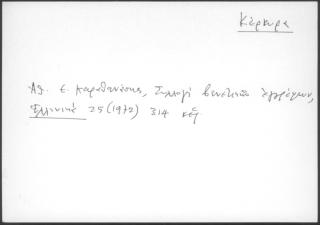 Κέρκυρα
Αθ. Ε. Καραθανάσης, Συλλογὴ βενετικῶν ἐγγράφων,
Ἑλληνικά 25 (1972) 314 κἑξ.